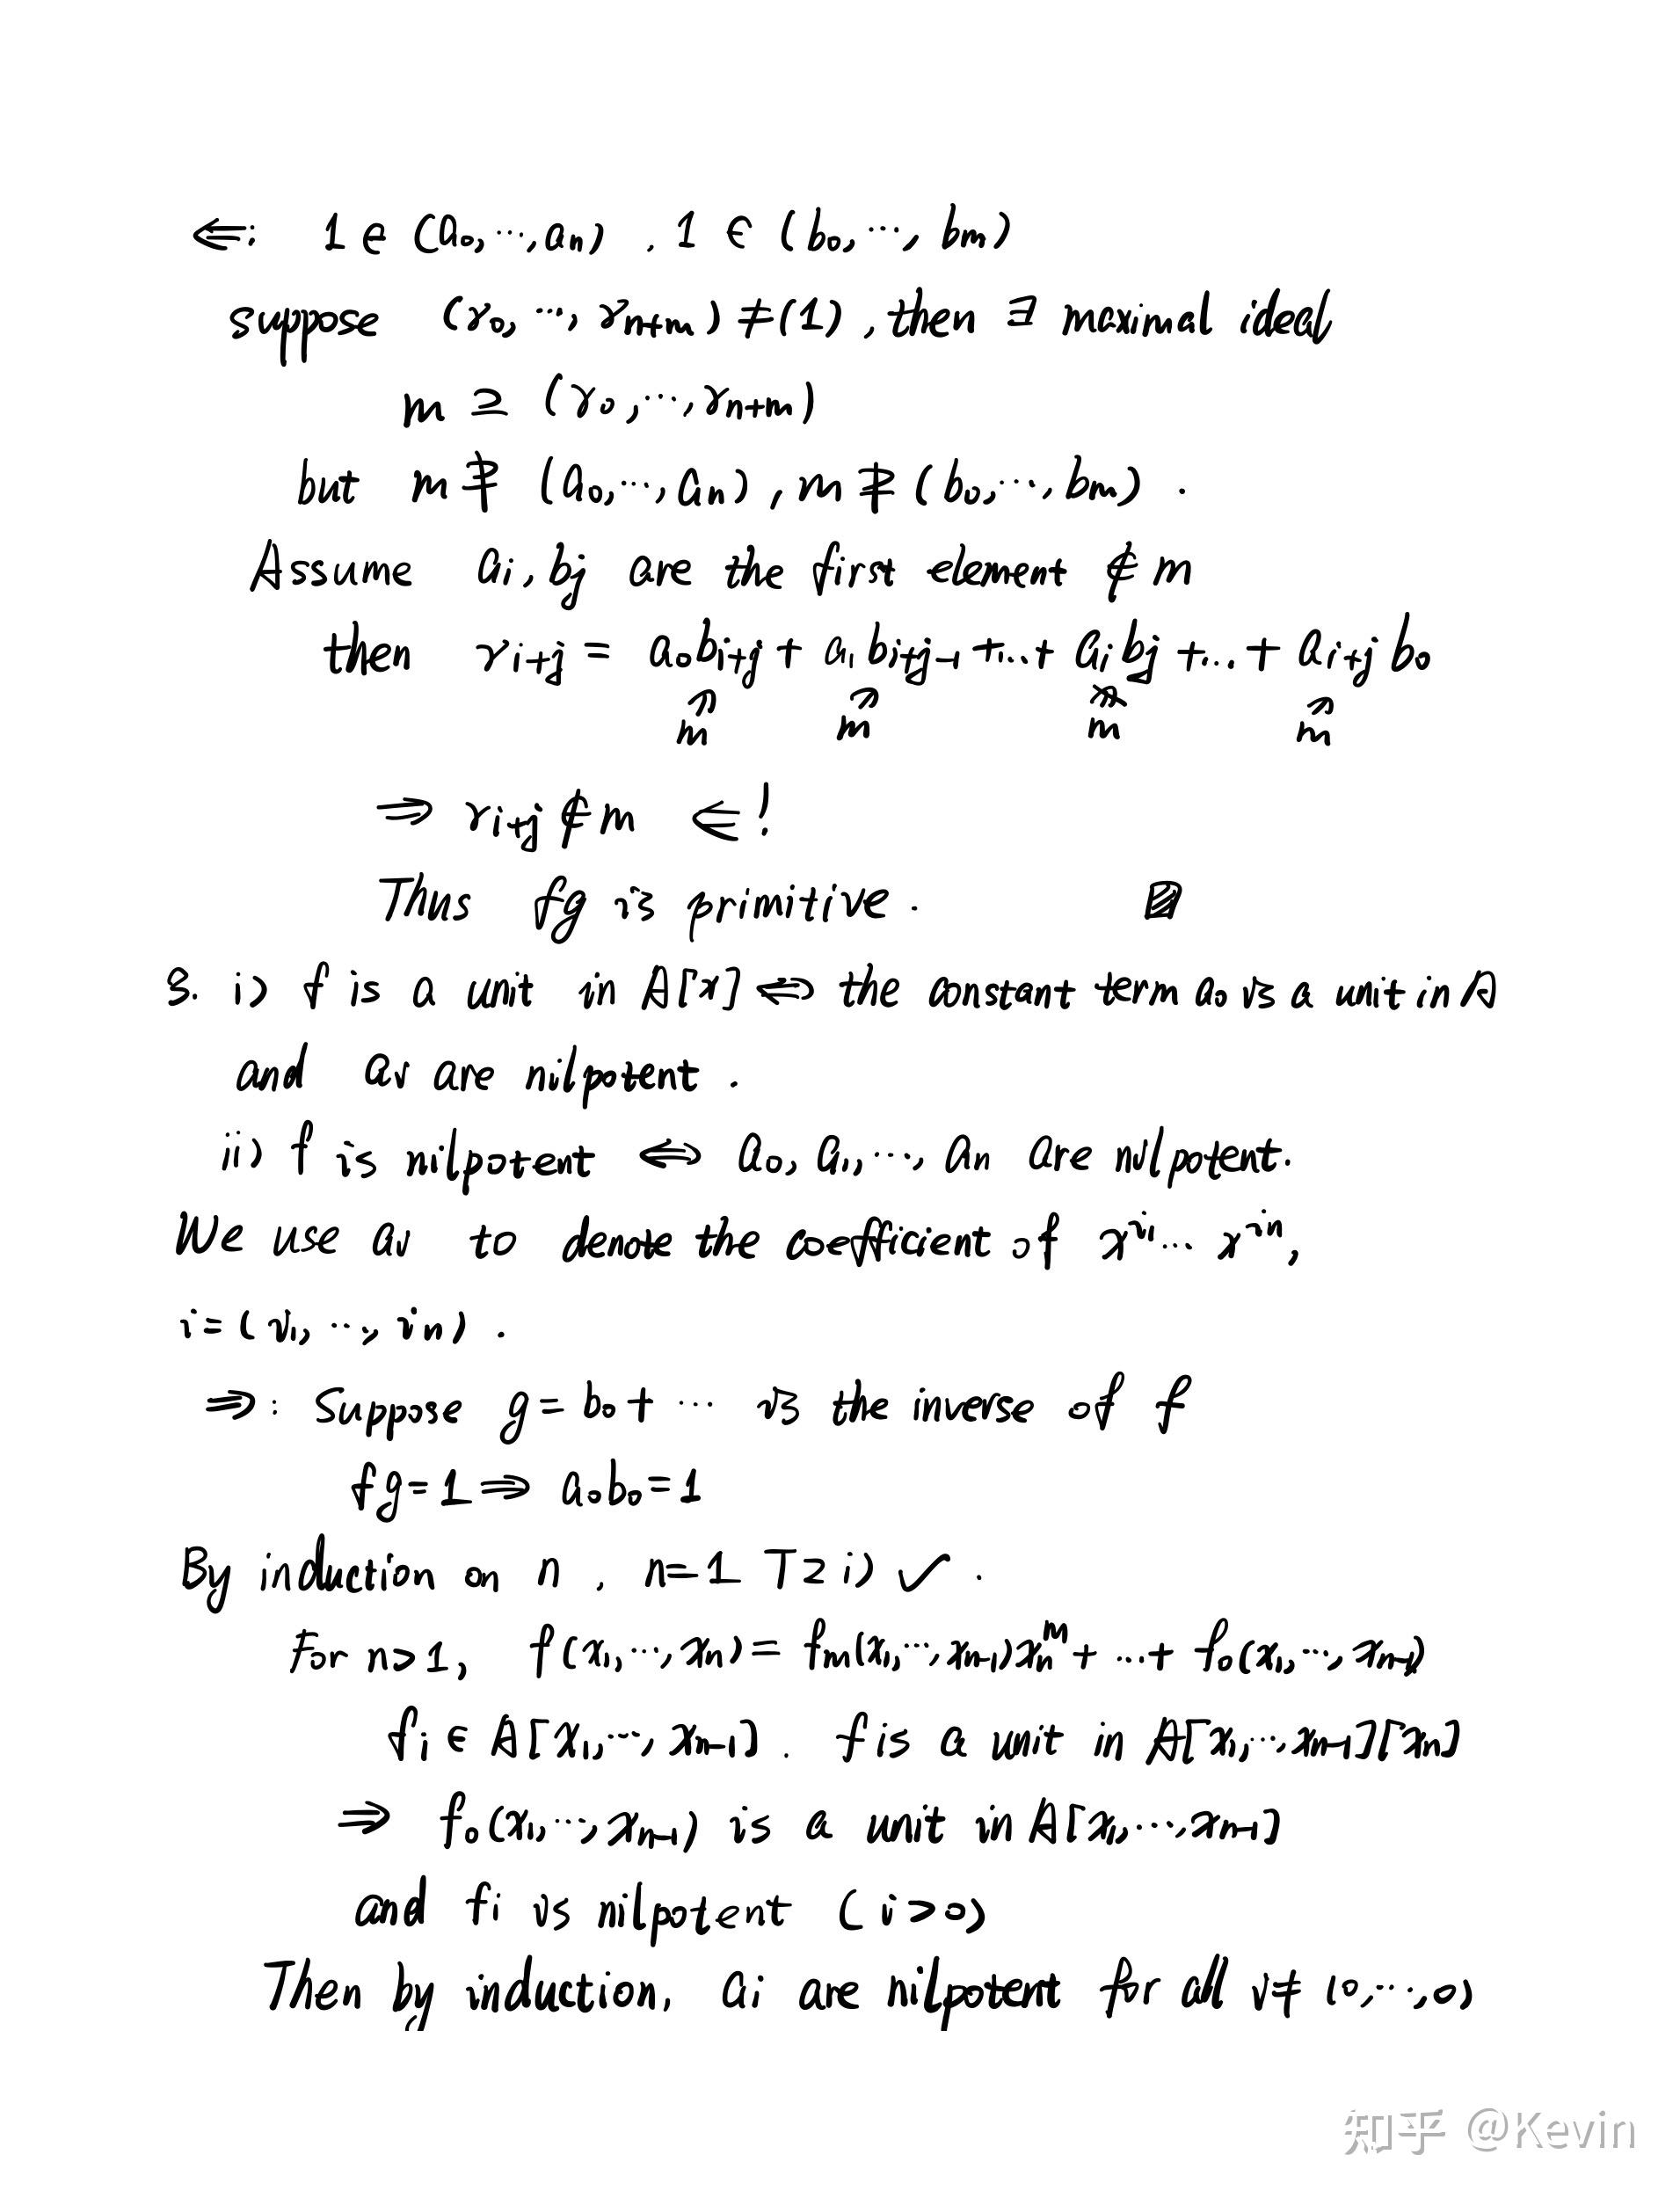 ⇐: 1 ∈ (a₀, ⋯, aₙ) , 1 ∈ (b₀, ⋯, bₘ)
suppose (γ₀, ⋯, γₙ₊ₘ) ≠ (1) , then ∃ maximal ideal
m ⊇ (γ₀, ⋯, γₙ₊ₘ)
but m ⊉ (a₀, ⋯, aₙ) , m ⊉ (b₀, ⋯, bₘ) .
Assume aᵢ, bⱼ are the first element ∉ m
then γᵢ₊ⱼ = a₀bᵢ₊ⱼ + a₁bᵢ₊ⱼ₋₁ + ... + aᵢbⱼ + ... + aᵢ₊ⱼb₀
m m m m
⇒ γᵢ₊ⱼ ∉ m ⇐!
Thus fg is primitive .
3. i) f is a unit in A[x] ⇔ the constant term a₀ is a unit in A
and aᵢ are nilpotent .
ii) f is nilpotent ⇔ a₀, a₁, ⋯, aₙ are nilpotent.
We use aᵢ to denote the coefficient of x^{i₁} ⋯ x^{iₙ},
i = (i₁, ⋯, iₙ) .
⇒: Suppose g = b₀ + ⋯ is the inverse of f
fg = 1 ⇒ a₀b₀ = 1
By induction on n , n=1 T2 i) ✓ .
For n>1, f(x₁, ⋯, xₙ) = fₘ(x₁, ⋯, xₙ₋₁)xₙᵐ + ... + f₀(x₁, ⋯, xₙ₋₁)
fᵢ ∈ A[x₁, ⋯, xₙ₋₁] . f is a unit in A[x₁, ⋯, xₙ₋₁][xₙ]
⇒ f₀(x₁, ⋯, xₙ₋₁) is a unit in A[x₁, ⋯, xₙ₋₁]
and fᵢ is nilpotent (i>0)
Then by induction, aᵢ are nilpotent for all i ≠ (0, ⋯, 0)
知乎 @Kevin